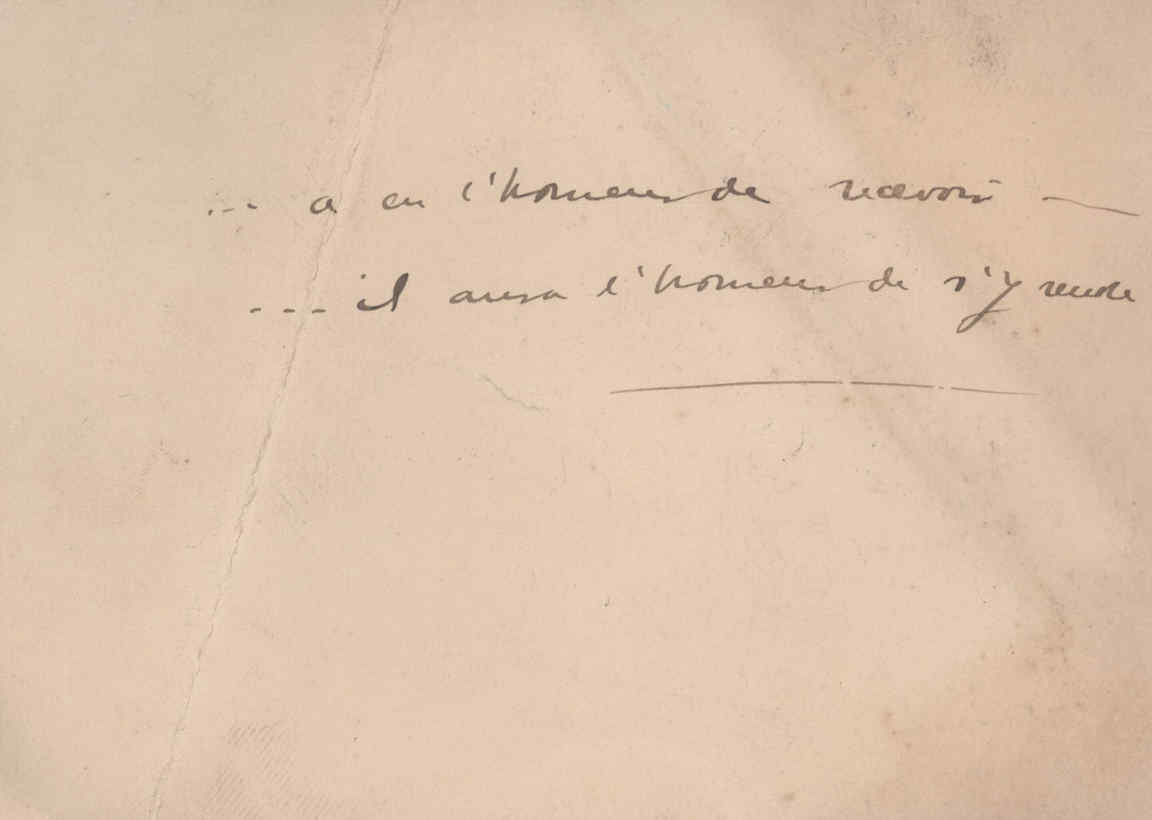 ... a eu l'honneur de recevoir —
... il aura l'honneur de s'y rendre